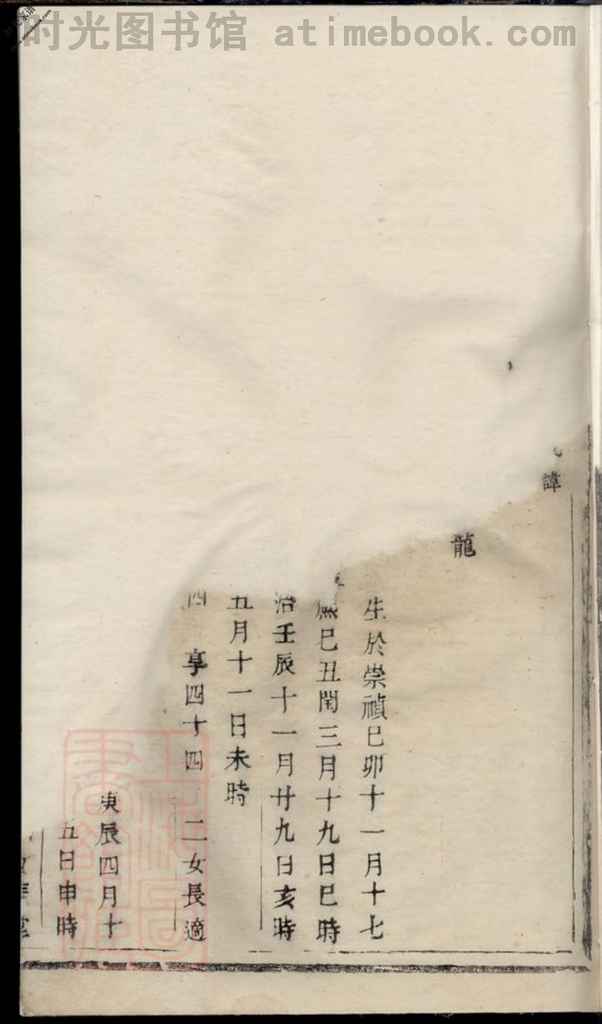 时光图书馆 atimebook.com
諱
龍
生於崇禎巳卯十一月十七
巳丑閏三月十九日巳時
治壬辰十一月廿九日亥時
五月十一日未時
四 享四十四 二女長適
庚辰四月十
五日申時